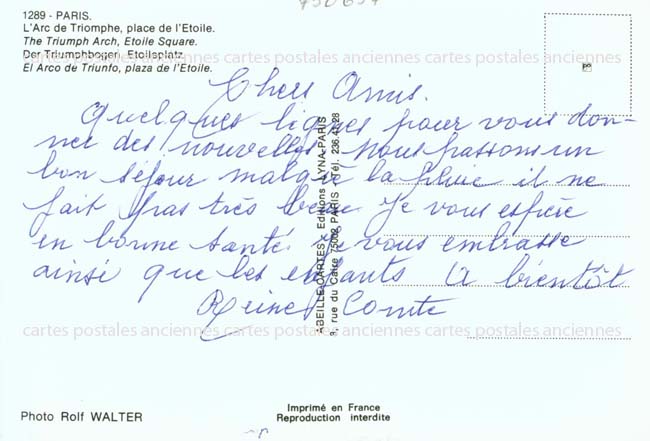 750654
1289 - PARIS.
L'Arc de Triomphe, place de l'Etoile.
The Triumph Arch, Etoile Square.
Der Triumphbogen, Etoilsplatz.
El Arco de Triunfo, plaza de l'Etoile.
cartes postales anciennes cartes postales anciennes cartes postales anciennes
Chers Amis.
Quelques lignes pour vous don-
ner des nouvelles. nous passons un
bon séjour malgré la pluie il ne
fait pas très beau. Je vous espère
en bonne santé. Je vous embrasse
ainsi que les enfants. A bientôt
Reine Comte
ABEILLE-CARTES - Editions LYNA-PARIS
8, rue du Caire 75002 PARIS (Tél. 236.41.28
cartes postales anciennes cartes postales anciennes cartes postales anciennes
Photo Rolf WALTER
Imprimé en France
Reproduction interdite